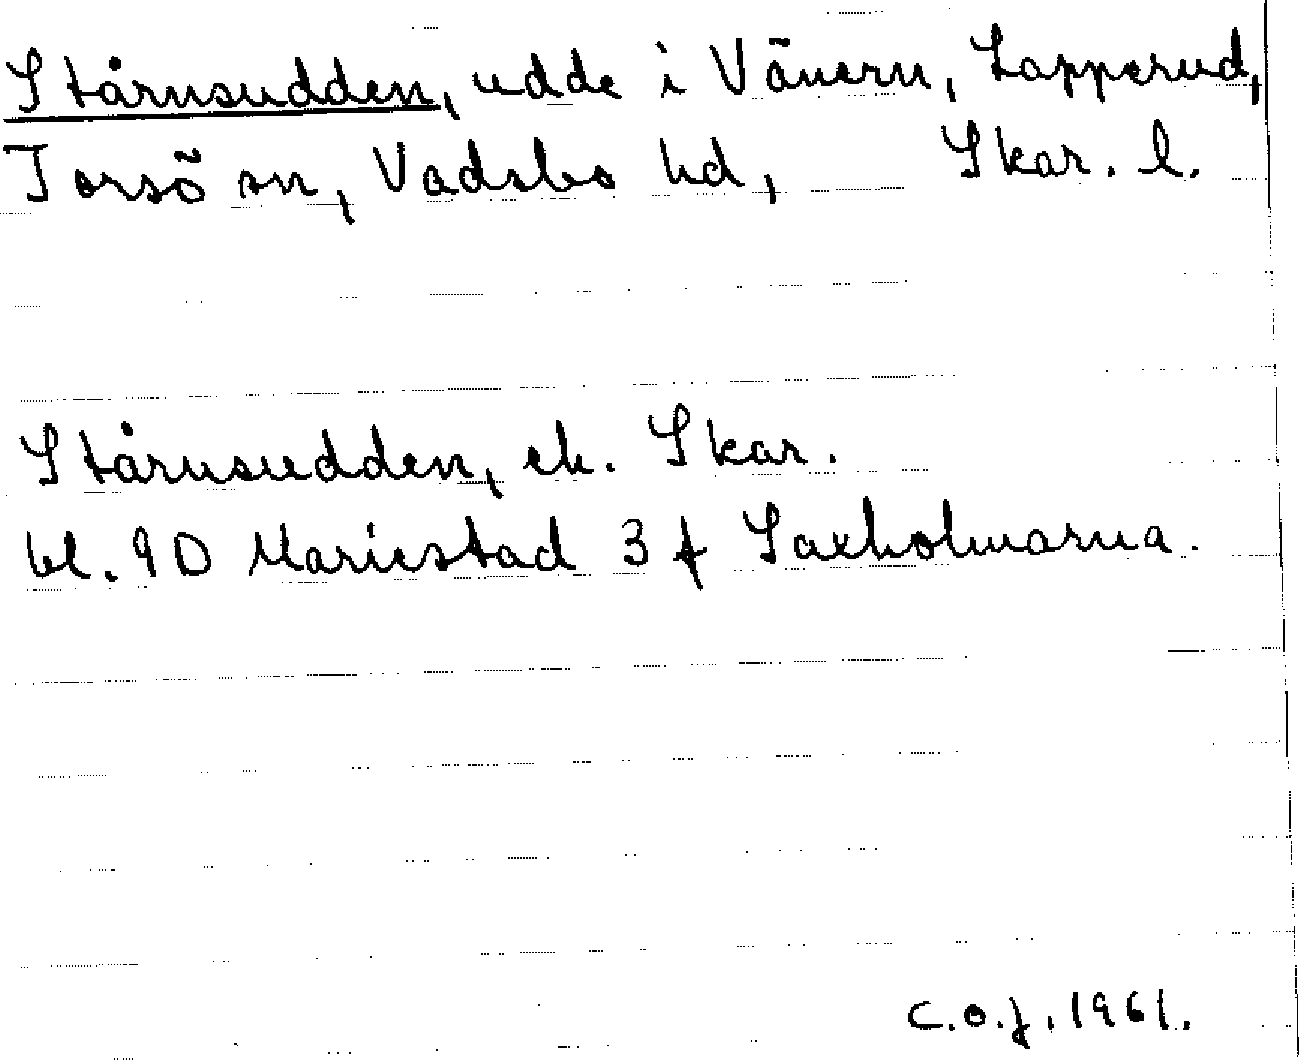 Stårnsudden, udde i Vänern, Lapperud,
Torsö sn, Vadsbo hd, Skar. l.
Stårnsudden, ek. Skar.
bl. 9D Mariestad 3 f Laxholmarna.
C.O.J. 1961.